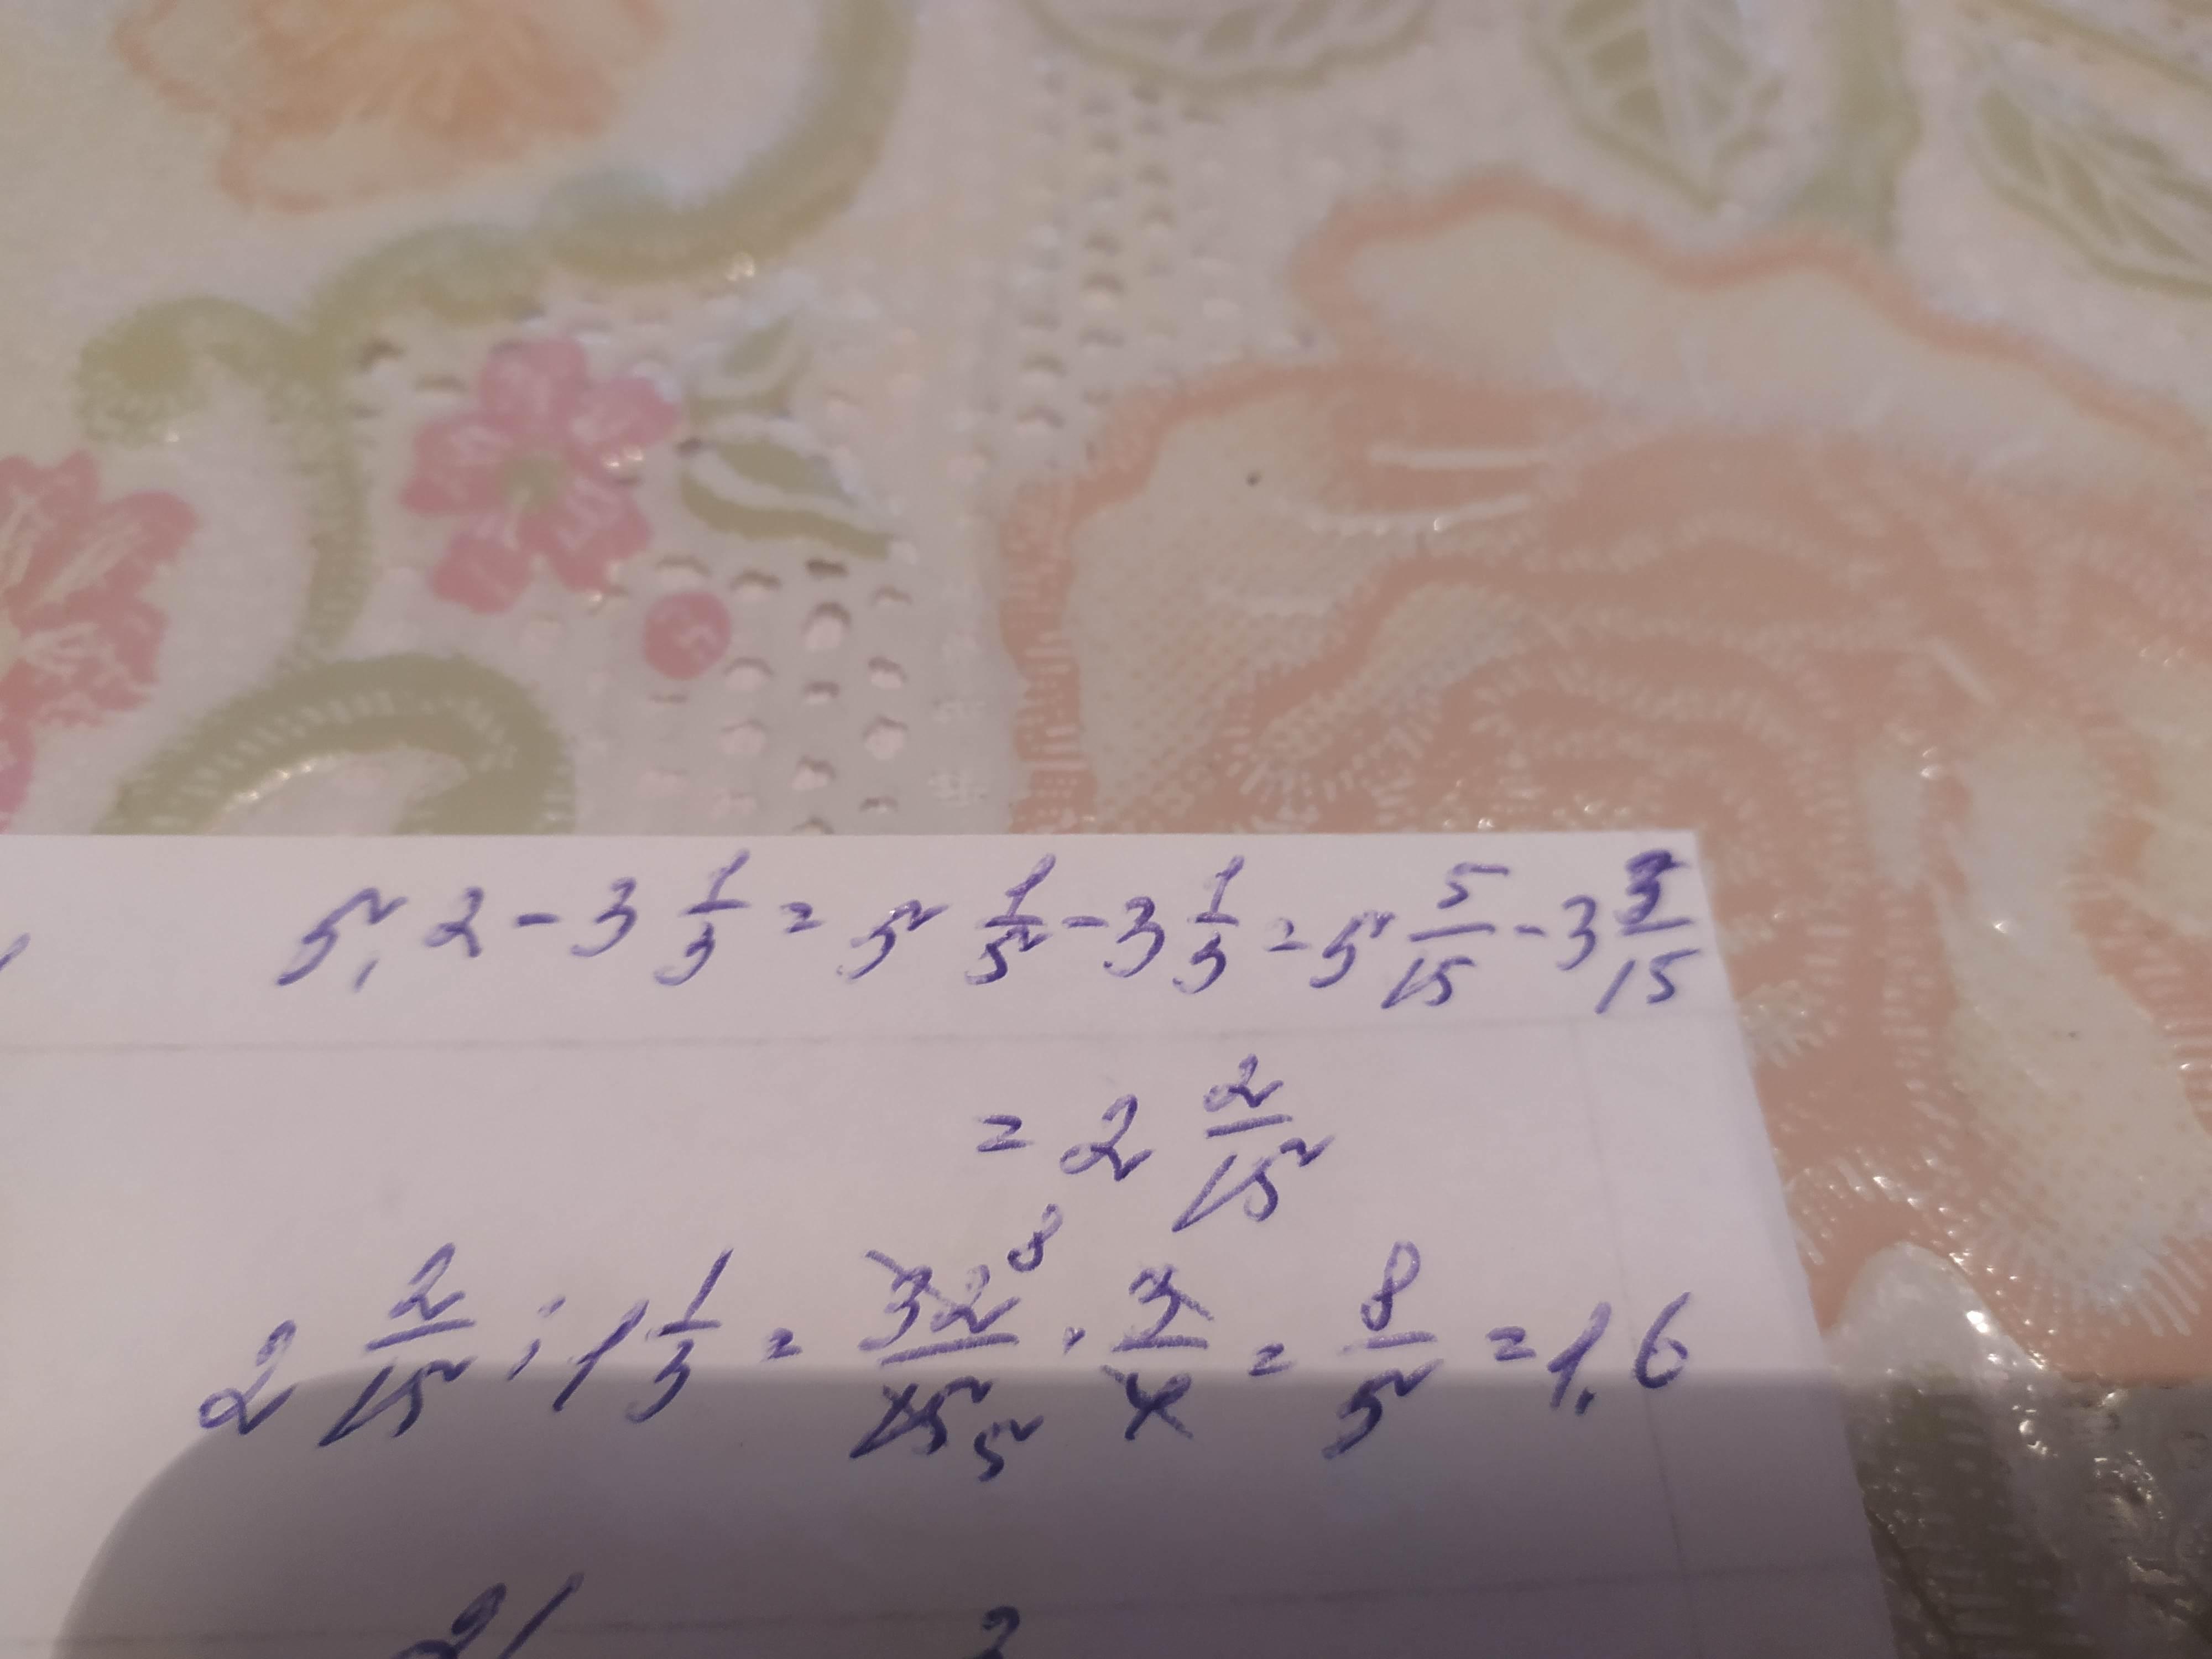 5,2 - 3 1/3 = 5 1/5 - 3 1/3 = 5 5/15 - 3 3/15
= 2 2/15
2 2/15 : 1 1/3 = 32 8/15 5 · 3/4 = 8/5 = 1,6